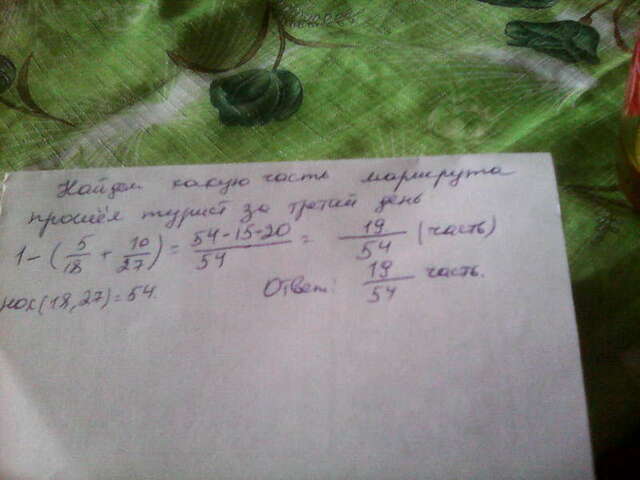 Найдем какую часть маршрута
прошёл турист за третий день
1 - (5/18 + 10/27) = 54-15-20/54 = 19/54 (часть)
НОК(18,27)=54.
Ответ: 19/54 часть.